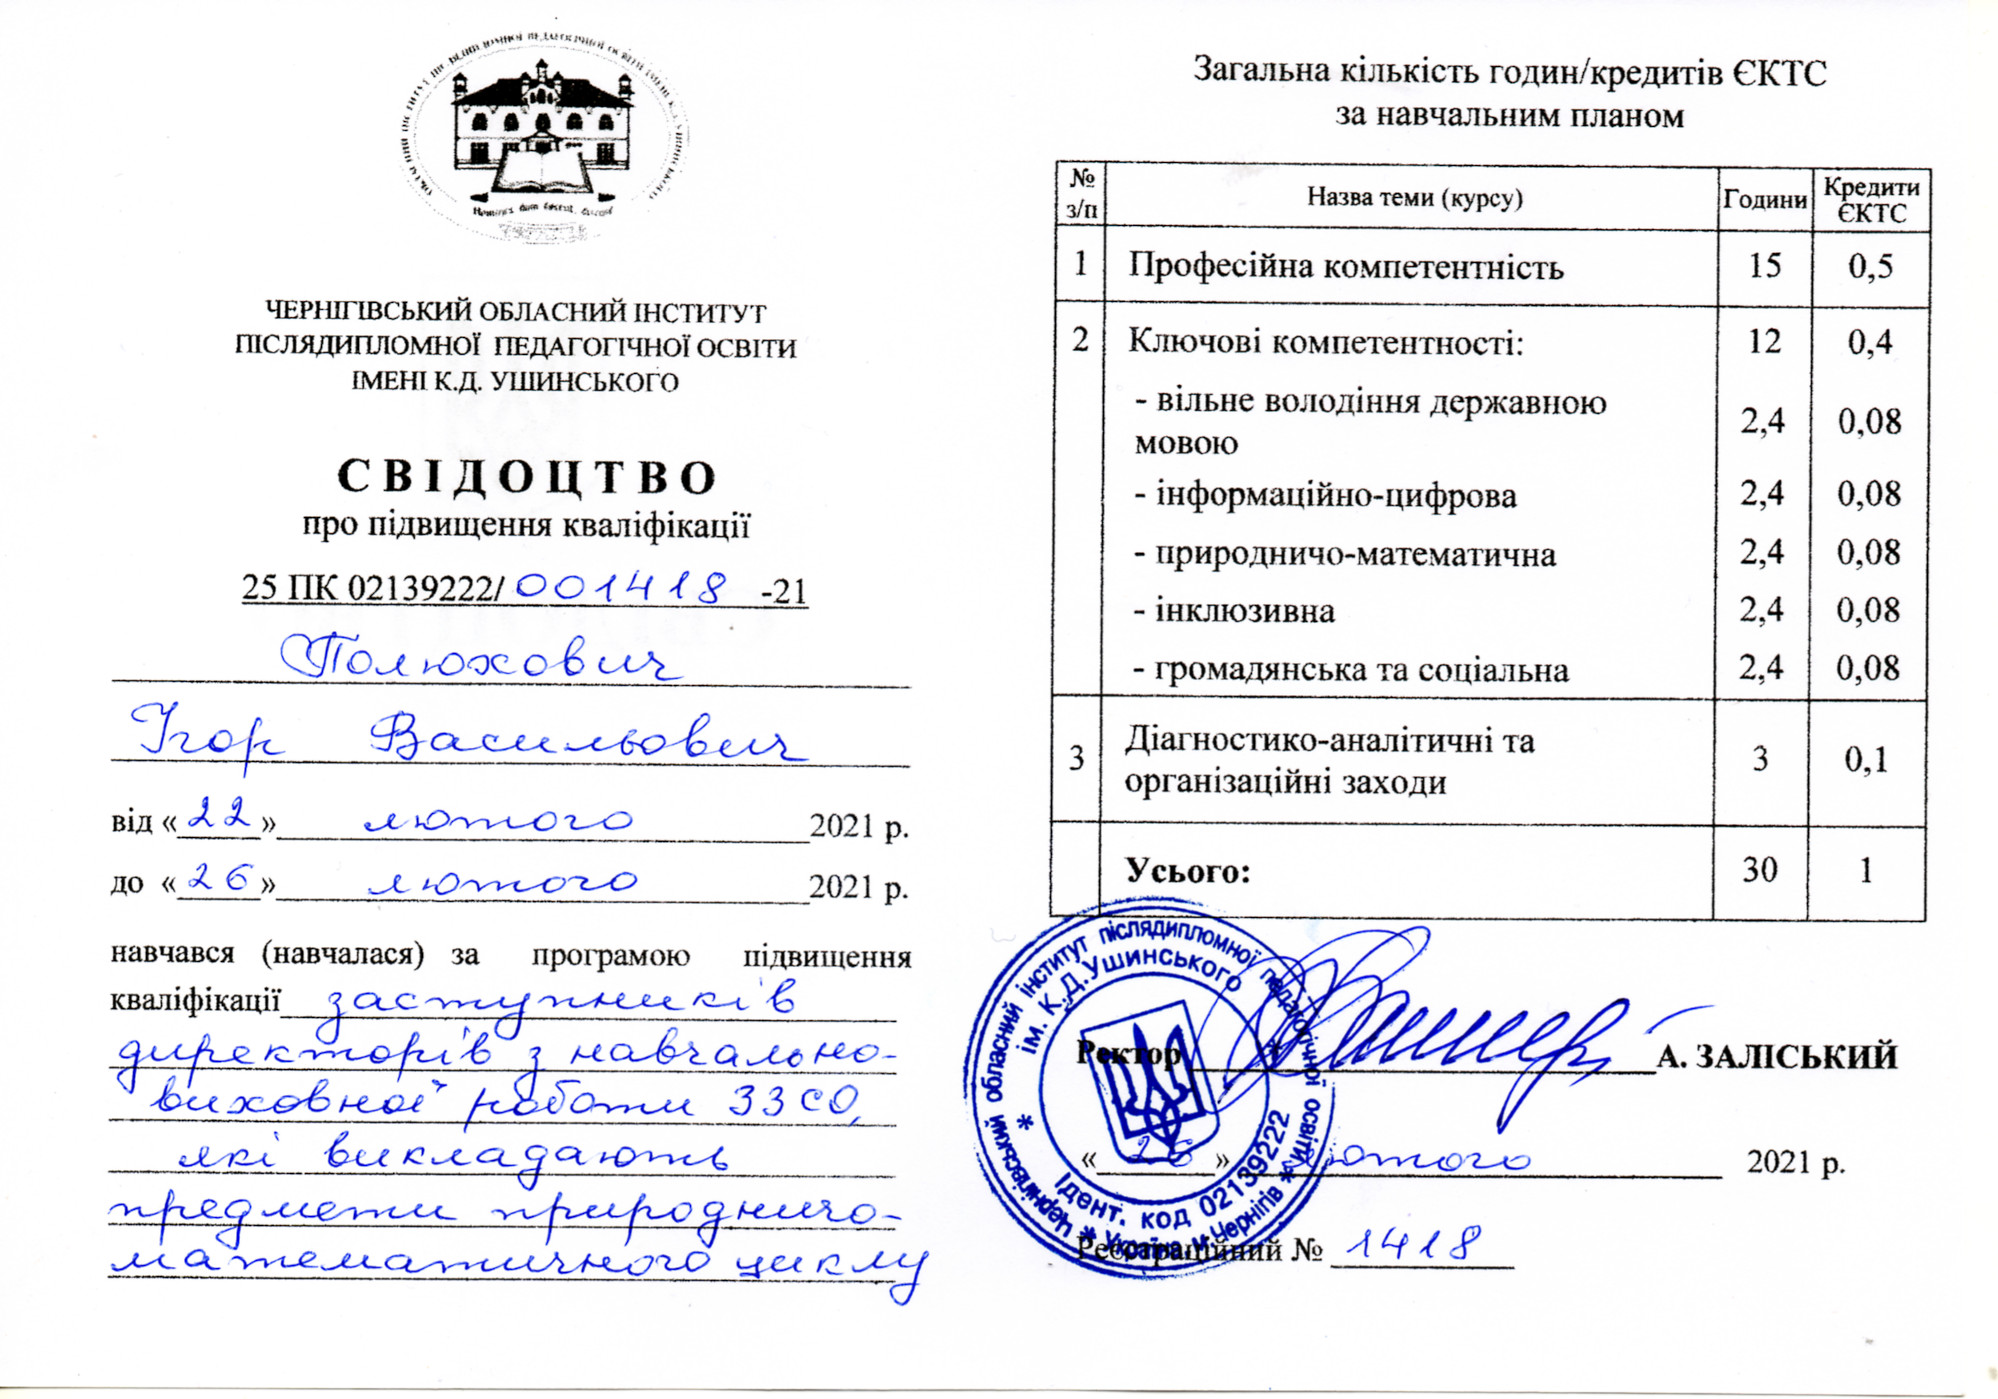 ЧЕРНІГІВСЬКИЙ ОБЛАСНИЙ ІНСТИТУТ
ПІСЛЯДИПЛОМНОЇ ПЕДАГОГІЧНОЇ ОСВІТИ
ІМЕНІ К.Д. УШИНСЬКОГО
СВІДОЦТВО
про підвищення кваліфікації
25 ПК 02139222/001418-21
Полюхович
Ігор Васильович
від «22» лютого 2021 р.
до «26» лютого 2021 р.
навчався (навчалася) за програмою підвищення
кваліфікації заступників
директорів з навчально-
виховної роботи ЗЗСО,
які викладають
предмети природничо-
математичного циклу
Загальна кількість годин/кредитів ЄКТС
за навчальним планом
№ з/п Назва теми (курсу) Години Кредити ЄКТС
1 Професійна компетентність 15 0,5
2 Ключові компетентності: 12 0,4
- вільне володіння державною
мовою 2,4 0,08
- інформаційно-цифрова 2,4 0,08
- природничо-математична 2,4 0,08
- інклюзивна 2,4 0,08
- громадянська та соціальна 2,4 0,08
3 Діагностико-аналітичні та
організаційні заходи 3 0,1
Усього: 30 1
Ректор А. ЗАЛІСЬКИЙ
«26» лютого 2021 р.
Реєстраційний № 1418
Чернігівський обласний інститут післядипломної педагогічної освіти
ім. К.Д.Ушинського
Ідент. код 02139222
* Україна, м.Чернігів *